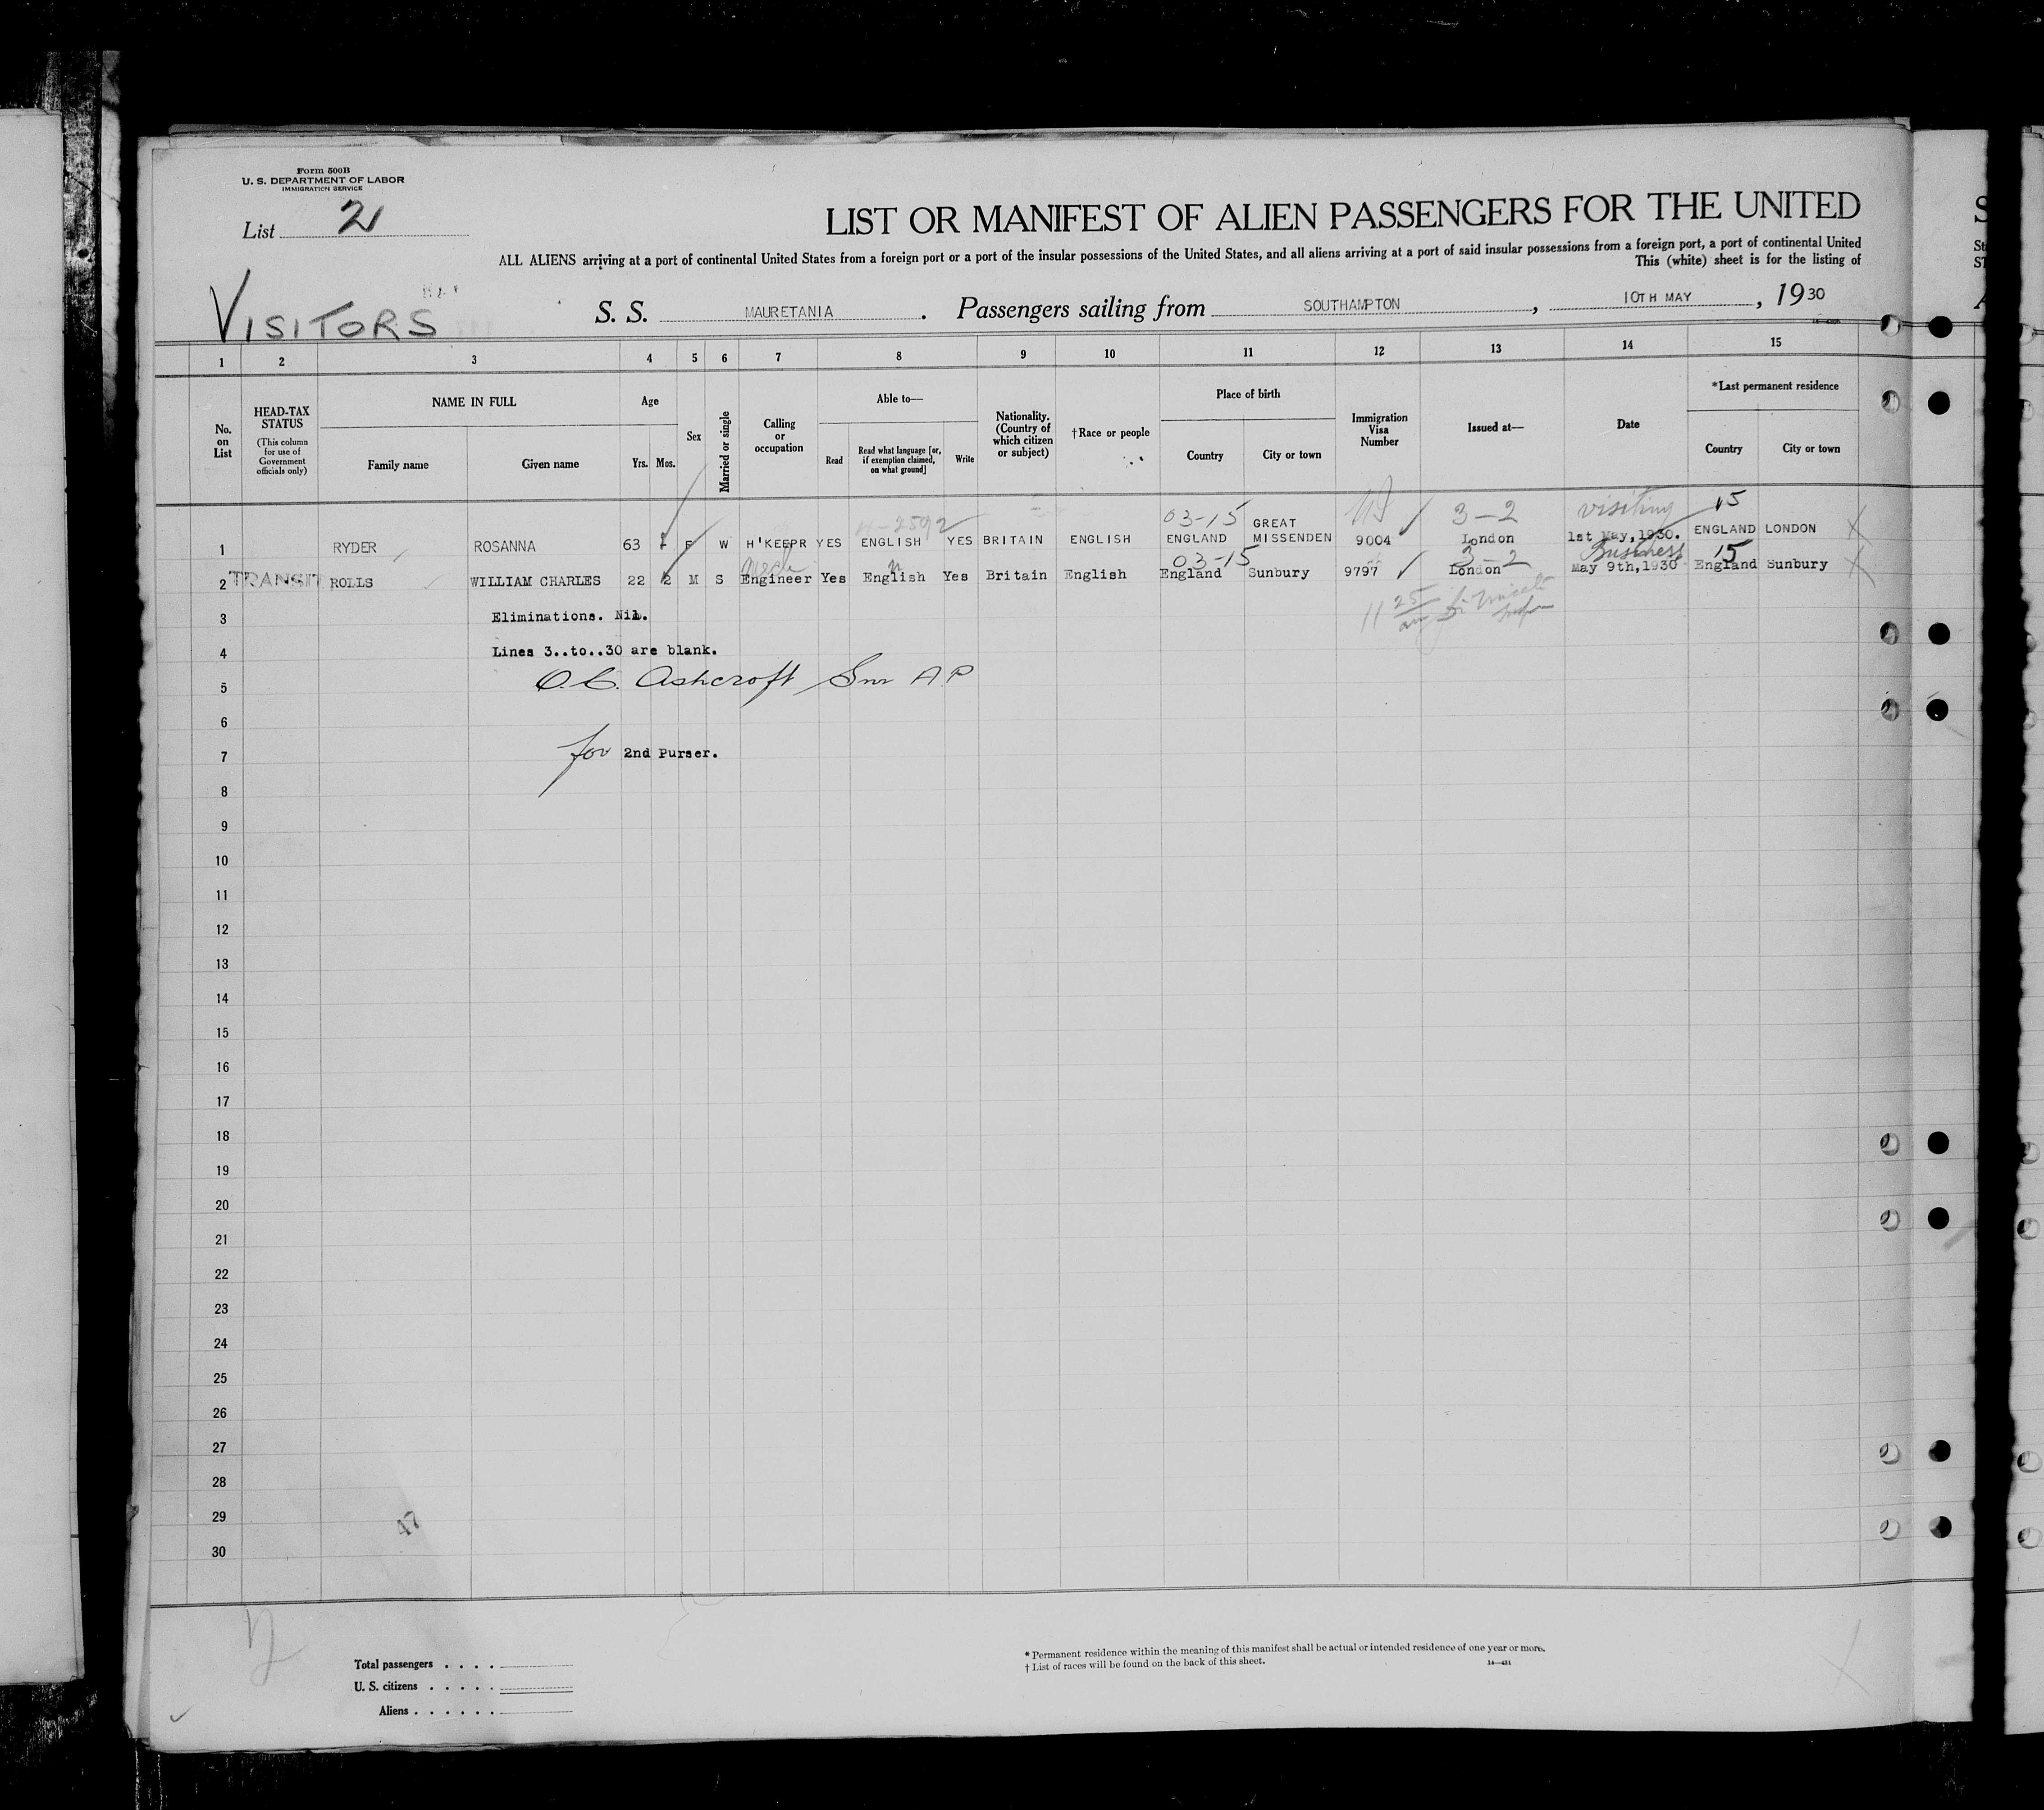 Form 500B
U. S. DEPARTMENT OF LABOR
IMMIGRATION SERVICE
List 21
LIST OR MANIFEST OF ALIEN PASSENGERS FOR THE UNITED
ALL ALIENS arriving at a port of continental United States from a foreign port or a port of the insular possessions of the United States, and all aliens arriving at a port of said insular possessions from a foreign port, a port of continental United
This (white) sheet is for the listing of
VISITORS
S. S. MAURETANIA. Passengers sailing from SOUTHAMPTON, 10TH MAY, 1930
1 2 3 4 5 6 7 8 9 10 11 12 13 14 15
No. on List
HEAD-TAX STATUS
(This column for use of Government officials only)
NAME IN FULL
Family name Given name
Age
Yrs. Mos.
Sex
Married or single
Calling or occupation
Able to—
Read
Read what language [or, if exemption claimed, on what ground]
Write
Nationality. (Country of which citizen or subject)
†Race or people
Place of birth
Country City or town
Immigration Visa Number
Issued at—
Date
*Last permanent residence
Country City or town
03-15 3-2 visiting 15
1 RYDER ROSANNA 63 F W H'KEEPR YES ENGLISH YES BRITAIN ENGLISH ENGLAND GREAT MISSENDEN 9004 London 1st May,1930. ENGLAND LONDON
03-15 3-2 Business 15
2 TRANSIT ROLLS WILLIAM CHARLES 22 2 M S Engineer Yes English Yes Britain English England Sunbury 9797 London May 9th,1930 England Sunbury
3 Eliminations. Nil.
4 Lines 3..to..30 are blank.
5 O.C. Ashcroft Snr A P
6
7 for 2nd Purser.
8
9
10
11
12
13
14
15
16
17
18
19
20
21
22
23
24
25
26
27
28
29 47
30
Total passengers . . . .
U. S. citizens . . . . .
Aliens . . . . . .
* Permanent residence within the meaning of this manifest shall be actual or intended residence of one year or more.
† List of races will be found on the back of this sheet.
14—431